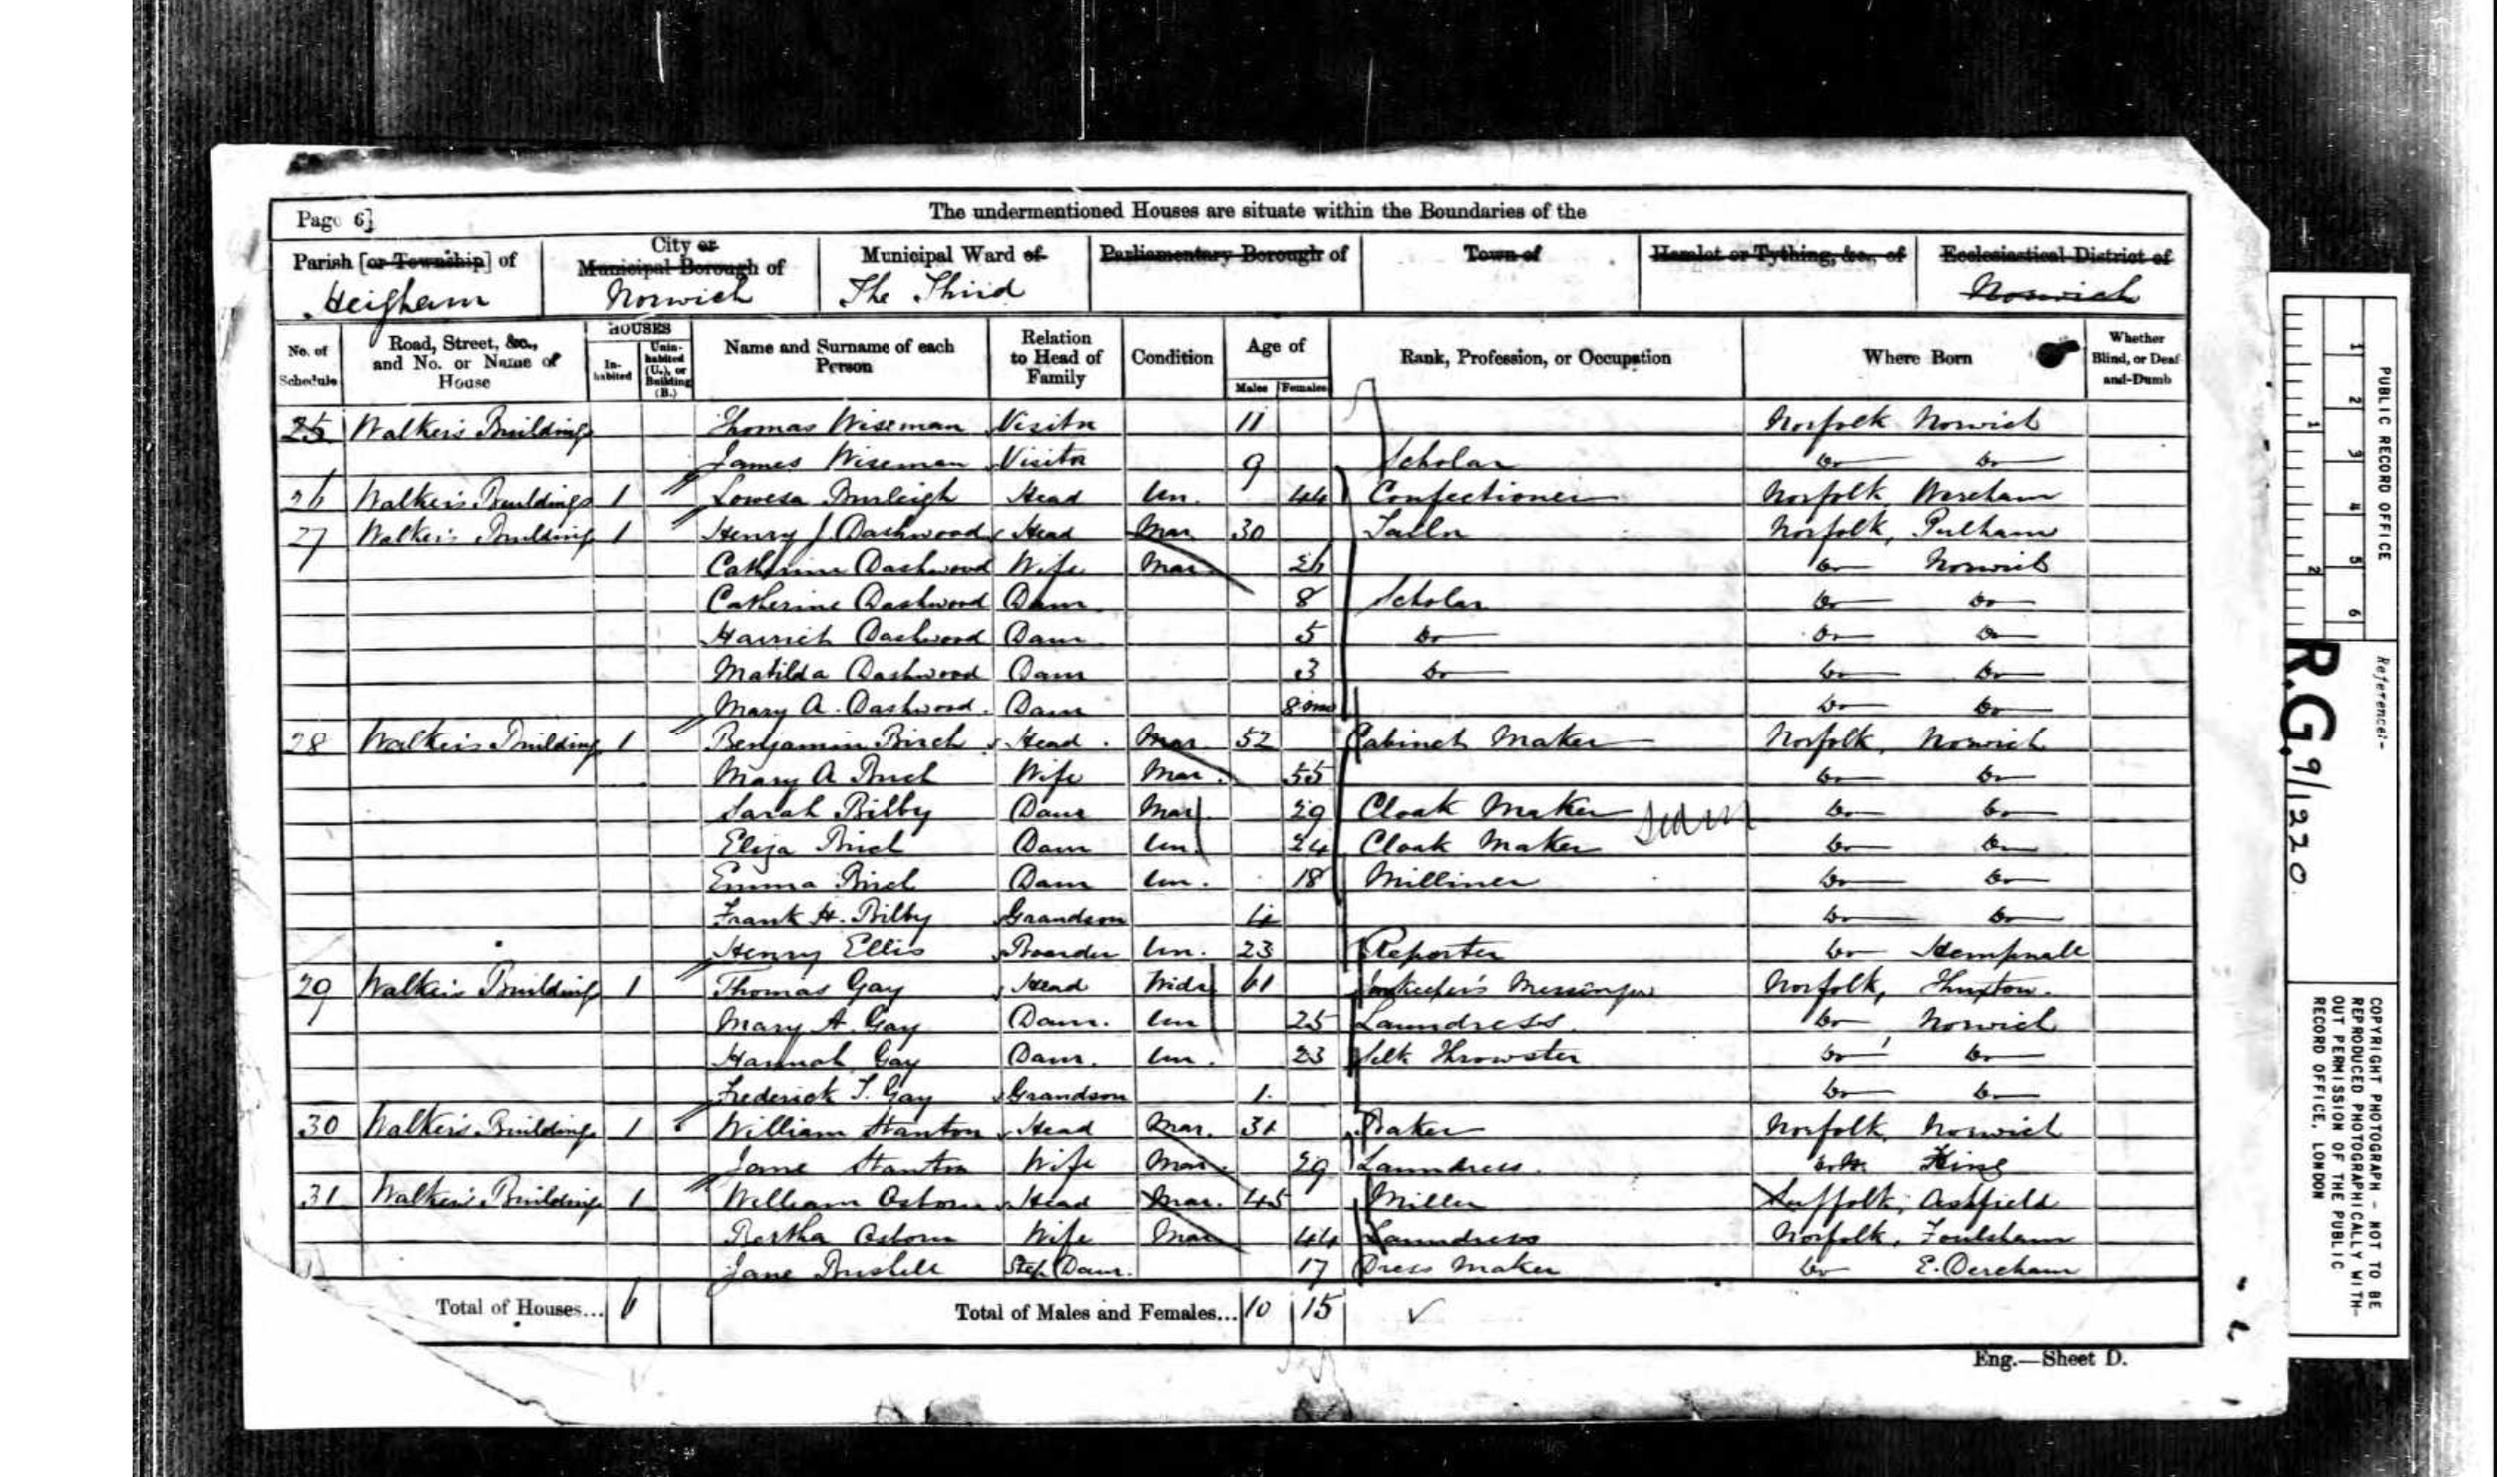 Page 6]
The undermentioned Houses are situate within the Boundaries of the
Parish [or Township] of Heigham
City or Municipal Borough of Norwich
Municipal Ward of The Third
Parliamentary Borough of
Town of
Hamlet or Tything, &c., of
Ecclesiastical District of Norwich
No. of Schedule
Road, Street, &c., and No. or Name of House
HOUSES
In-habited
Unin-habited (U.), or Building (B.)
Name and Surname of each Person
Relation to Head of Family
Condition
Age of
Males Females
Rank, Profession, or Occupation
Where Born
Whether Blind, or Deaf-and-Dumb
25 Walker's Buildings Thomas Wiseman Visitor 11 Norfolk Norwich
James Wiseman Visitor 9 Scholar Do Do
26 Walker's Buildings 1 Lowesa Burleigh Head Un. 44 Confectioner Norfolk Wereham
27 Walker's Building 1 Henry J Dashwood Head Mar 30 Tailor Norfolk, Pulham
Catherine Dashwood Wife Mar 26 Do Norwich
Catherine Dashwood Daur 8 Scholar Do Do
Harriet Dashwood Daur 5 Do Do Do
Matilda Dashwood Daur 3 Do Do Do
Mary A. Dashwood. Daur 8 mo Do Do
28 Walker's Building 1 Benjamin Birch Head Mar 52 Cabinet Maker Norfolk, Norwich
Mary A Birch Wife Mar 55 Do Do
Sarah Bilby Daur Mar 29 Cloak Maker Do Do
Eliza Birch Daur Un 24 Cloak Maker Do Do
Emma Birch Daur Un. 18 Milliner Do Do
Frank H. Bilby Grandson 4 Do Do
Henry Ellis Boarder Un. 23 Reporter Do Hempnall
29 Walker's Building 1 Thomas Gay Head Widr 61 Messenger Norfolk,
Mary A. Gay Daur. Un 25 Laundress Do Norwich
Hannah Gay Daur. Un. 23 Silk Throwster Do Do
Frederick T. Gay Grandson 1 Do Do
30 Walker's Building 1 William Stanton Head Mar. 31 Baker Norfolk, Norwich
Jane Stanton Wife Mar. 29 Laundress.
31 Walker's Building 1 William Osborn Head Mar. 45 Miller Suffolk, Ashfield
Bertha Osborn Wife Mar 44 Laundress Norfolk, Foulsham
Jane Step Daur. 17 Dress Maker Do E. Dereham
Total of Houses... 6
Total of Males and Females... 10 15
Eng.—Sheet D.
1 2
1 2 3 4 5 6
PUBLIC RECORD OFFICE
Reference:-
R.G. 9/1220
COPYRIGHT PHOTOGRAPH - NOT TO BE
REPRODUCED PHOTOGRAPHICALLY WITH-
OUT PERMISSION OF THE PUBLIC
RECORD OFFICE, LONDON